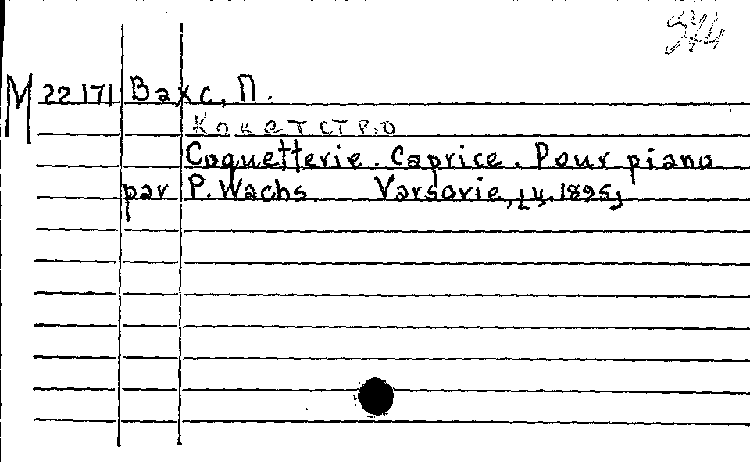 М 22171 Вахс, П.
Coquetterie. Caprice. Pour piano
par P. Wachs Varsovie, [ц. 1895]